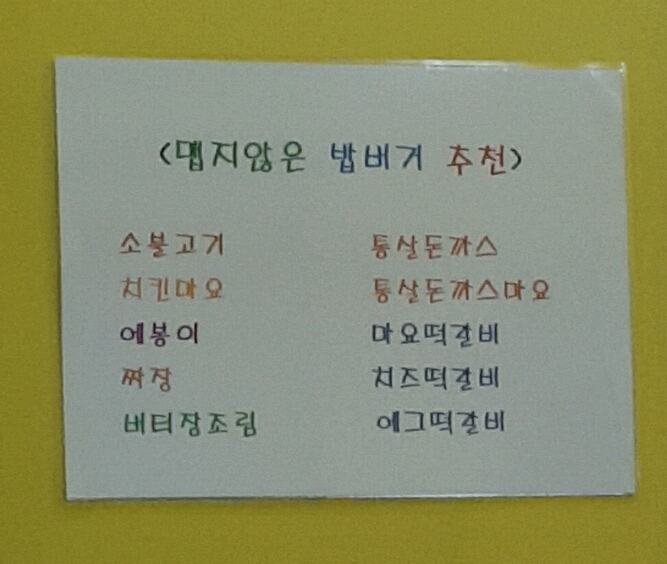 <맵지않은 밥버거 추천>
소불고기
치킨마요
에봉이
짜장
버터장조림
통살돈까스
통살돈까스마요
마요떡갈비
치즈떡갈비
에그떡갈비